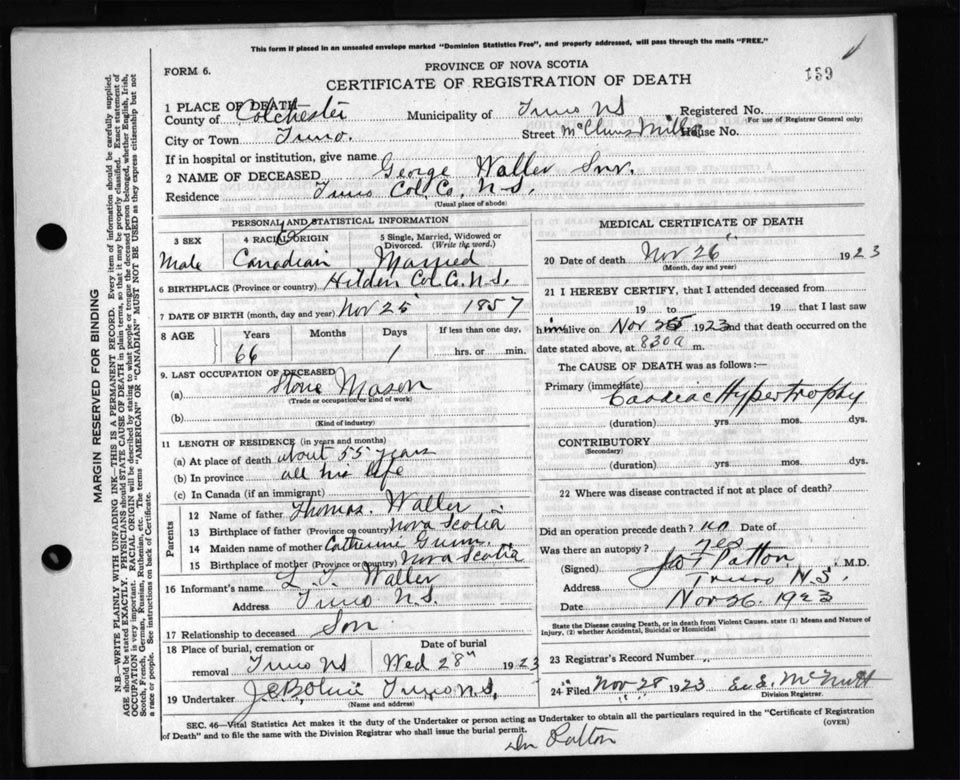 This form if placed in an unsealed envelope marked "Dominion Statistics Free", and properly addressed, will pass through the mails "FREE."
FORM 6.
PROVINCE OF NOVA SCOTIA
159
CERTIFICATE OF REGISTRATION OF DEATH
1 PLACE OF DEATH—
County of Colchester Municipality of Truro NS Registered No.
(For use of Registrar General only)
City or Town Truro. Street McClures Mills House No.
If in hospital or institution, give name
2 NAME OF DECEASED George Waller Snr.
Residence Truro Col. Co. N.S.
(Usual place of abode)
PERSONAL AND STATISTICAL INFORMATION
3 SEX 4 RACIAL ORIGIN 5 Single, Married, Widowed or Divorced. (Write the word.)
Male Canadian Married
6 BIRTHPLACE (Province or country) Hilden Col. Co. N.S.
7 DATE OF BIRTH (month, day and year) Nov 25 1857
8 AGE Years Months Days If less than one day,
66 1 hrs. or min.
9. LAST OCCUPATION OF DECEASED
(a) Stone Mason
(Trade or occupation or kind of work)
(b)
(Kind of industry)
11 LENGTH OF RESIDENCE (in years and months)
(a) At place of death about 55 years
(b) In province all his life
(c) In Canada (if an immigrant)
Parents
12 Name of father Thomas. Waller
13 Birthplace of father (Province or country) Nova Scotia
14 Maiden name of mother Catherine Gunn.
15 Birthplace of mother (Province or country) Nova Scotia
16 Informant's name L. T. Waller
Address Truro N.S.
17 Relationship to deceased Son
18 Place of burial, cremation or removal Truro NS
Date of burial Wed 28" 1923
19 Undertaker Truro N.S.
(Name and address)
MEDICAL CERTIFICATE OF DEATH
20 Date of death Nov 26" 1923
(Month, day and year)
21 I HEREBY CERTIFY, that I attended deceased from
19 to 19 that I last saw
him alive on Nov 25 1923 and that death occurred on the
date stated above, at 830 a m.
The CAUSE OF DEATH was as follows :—
Primary (immediate)
Cardiac Hypertrophy
(duration) yrs mos. dys.
CONTRIBUTORY
(Secondary)
(duration) yrs mos. dys.
22 Where was disease contracted if not at place of death?
Did an operation precede death? no Date of
Was there an autopsy? yes
(Signed) Patton, M.D.
Address Truro N.S.
Date Nov 26. 1923
State the Disease causing Death, or in death from Violent Causes. state (1) Means and Nature of Injury, (2) whether Accidental, Suicidal or Homicidal
23 Registrar's Record Number
24 Filed Nov-28 1923 McNutt
Division Registrar.
SEC. 46—Vital Statistics Act makes it the duty of the Undertaker or person acting as Undertaker to obtain all the particulars required in the "Certificate of Registration of Death" and to file the same with the Division Registrar who shall issue the burial permit.
(OVER)
Dr Patton
MARGIN RESERVED FOR BINDING
N.B—WRITE PLAINLY WITH UNFADING INK—THIS IS A PERMANENT RECORD. Every item of information should be carefully supplied.
AGE should be stated EXACTLY. PHYSICIANS should STATE CAUSE OF DEATH in plain terms, so that it may be properly classified. Exact statement of
OCCUPATION is very important. RACIAL ORIGIN will be described by stating to what people or tongue the deceased person belonged, whether English, Irish,
Scotch, French, German, Russian, Ruthenian, etc. The terms "AMERICAN" or "CANADIAN" MUST NOT BE USED as they express citizenship but not
a race or people. See instructions on back of Certificate.